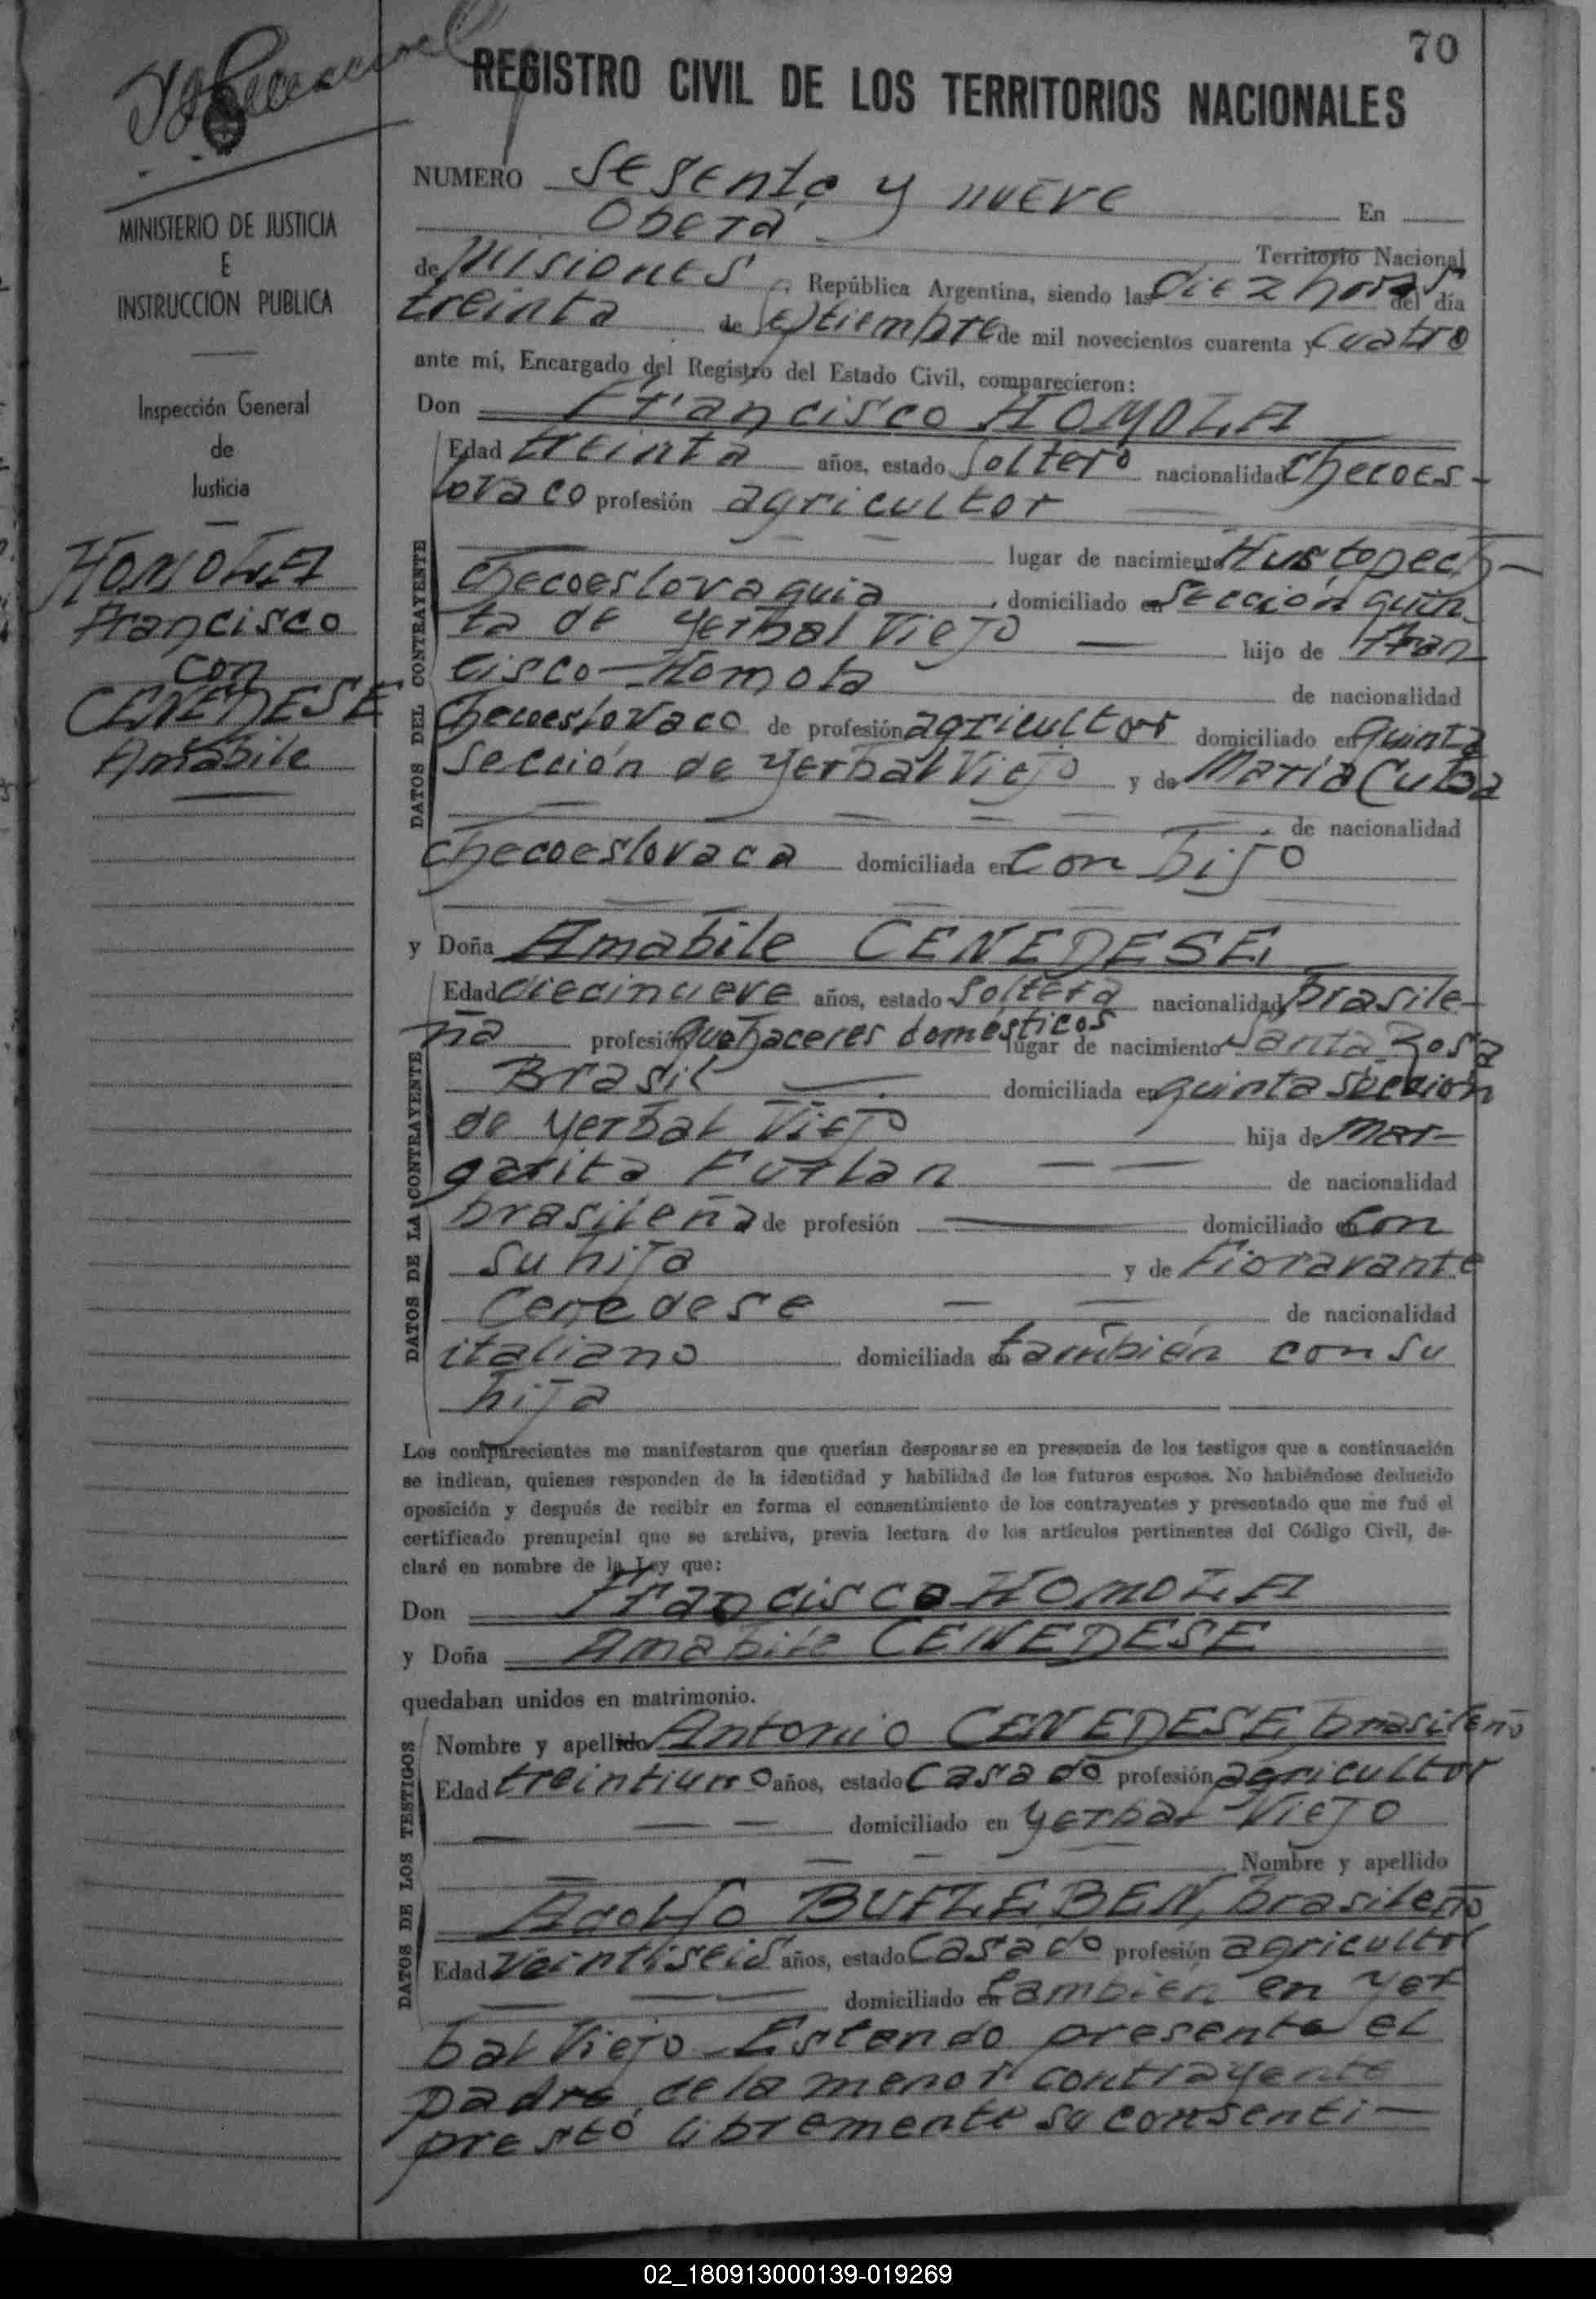 70
REGISTRO CIVIL DE LOS TERRITORIOS NACIONALES
MINISTERIO DE JUSTICIA
E
INSTRUCCION PUBLICA
Inspección General
de
Justicia
HOMOLA
Francisco
con
CENEDESE
Amabile
NUMERO Sesenta y nueve En
Oberá Territorio Nacional
de Misiones, República Argentina, siendo las diez horas del día
treinta de Septiembre de mil novecientos cuarenta y cuatro
ante mí, Encargado del Registro del Estado Civil, comparecieron:
Don Francisco HOMOLA
DATOS DEL CONTRAYENTE
Edad treinta años, estado soltero nacionalidad checoes-
lovaco profesión agricultor
lugar de nacimiento Hustopech-
checoeslovaquia, domiciliado en Sección quin
ta de Yerbal Viejo hijo de Fran
cisco Homola de nacionalidad
checoeslovaco de profesión agricultor domiciliado en quinta
sección de Yerbal Viejo y de Maria
de nacionalidad
checoeslovaca domiciliada en con hijo
y Doña Amabile CENEDESE,
DATOS DE LA CONTRAYENTE
Edad diecinueve años, estado soltera nacionalidad brasile-
ña profesión quehaceres domésticos lugar de nacimiento Santa Rosa
Brasil domiciliada en quinta sección
de Yerbal Viejo hija de Mar-
garita Furlan de nacionalidad
brasileña de profesión domiciliado en con
su hija y de Fioravante
Cenedese de nacionalidad
italiano domiciliada en también con su
hija
Los comparecientes me manifestaron que querían desposarse en presencia de los testigos que a continuación
se indican, quienes responden de la identidad y habilidad de los futuros esposos. No habiéndose deducido
oposición y después de recibir en forma el consentimiento de los contrayentes y presentado que me fué el
certificado prenupcial que se archiva, previa lectura de los artículos pertinentes del Código Civil, de-
claré en nombre de la Ley que:
Don Francisco HOMOLA
y Doña Amabile CENEDESE
quedaban unidos en matrimonio.
DATOS DE LOS TESTIGOS
Nombre y apellido Antonio CENEDESE, brasileño
Edad treintiuno años, estado casado profesión agricultor
domiciliado en Yerbal Viejo
Nombre y apellido
Adolfo BUFLEBEN, brasileño
Edad veintiseis años, estado casado profesión agricultor
domiciliado en también en Yer
bal Viejo - Estando presente el
padre de la menor contrayente
prestó libremente su consenti-
02_180913000139-019269